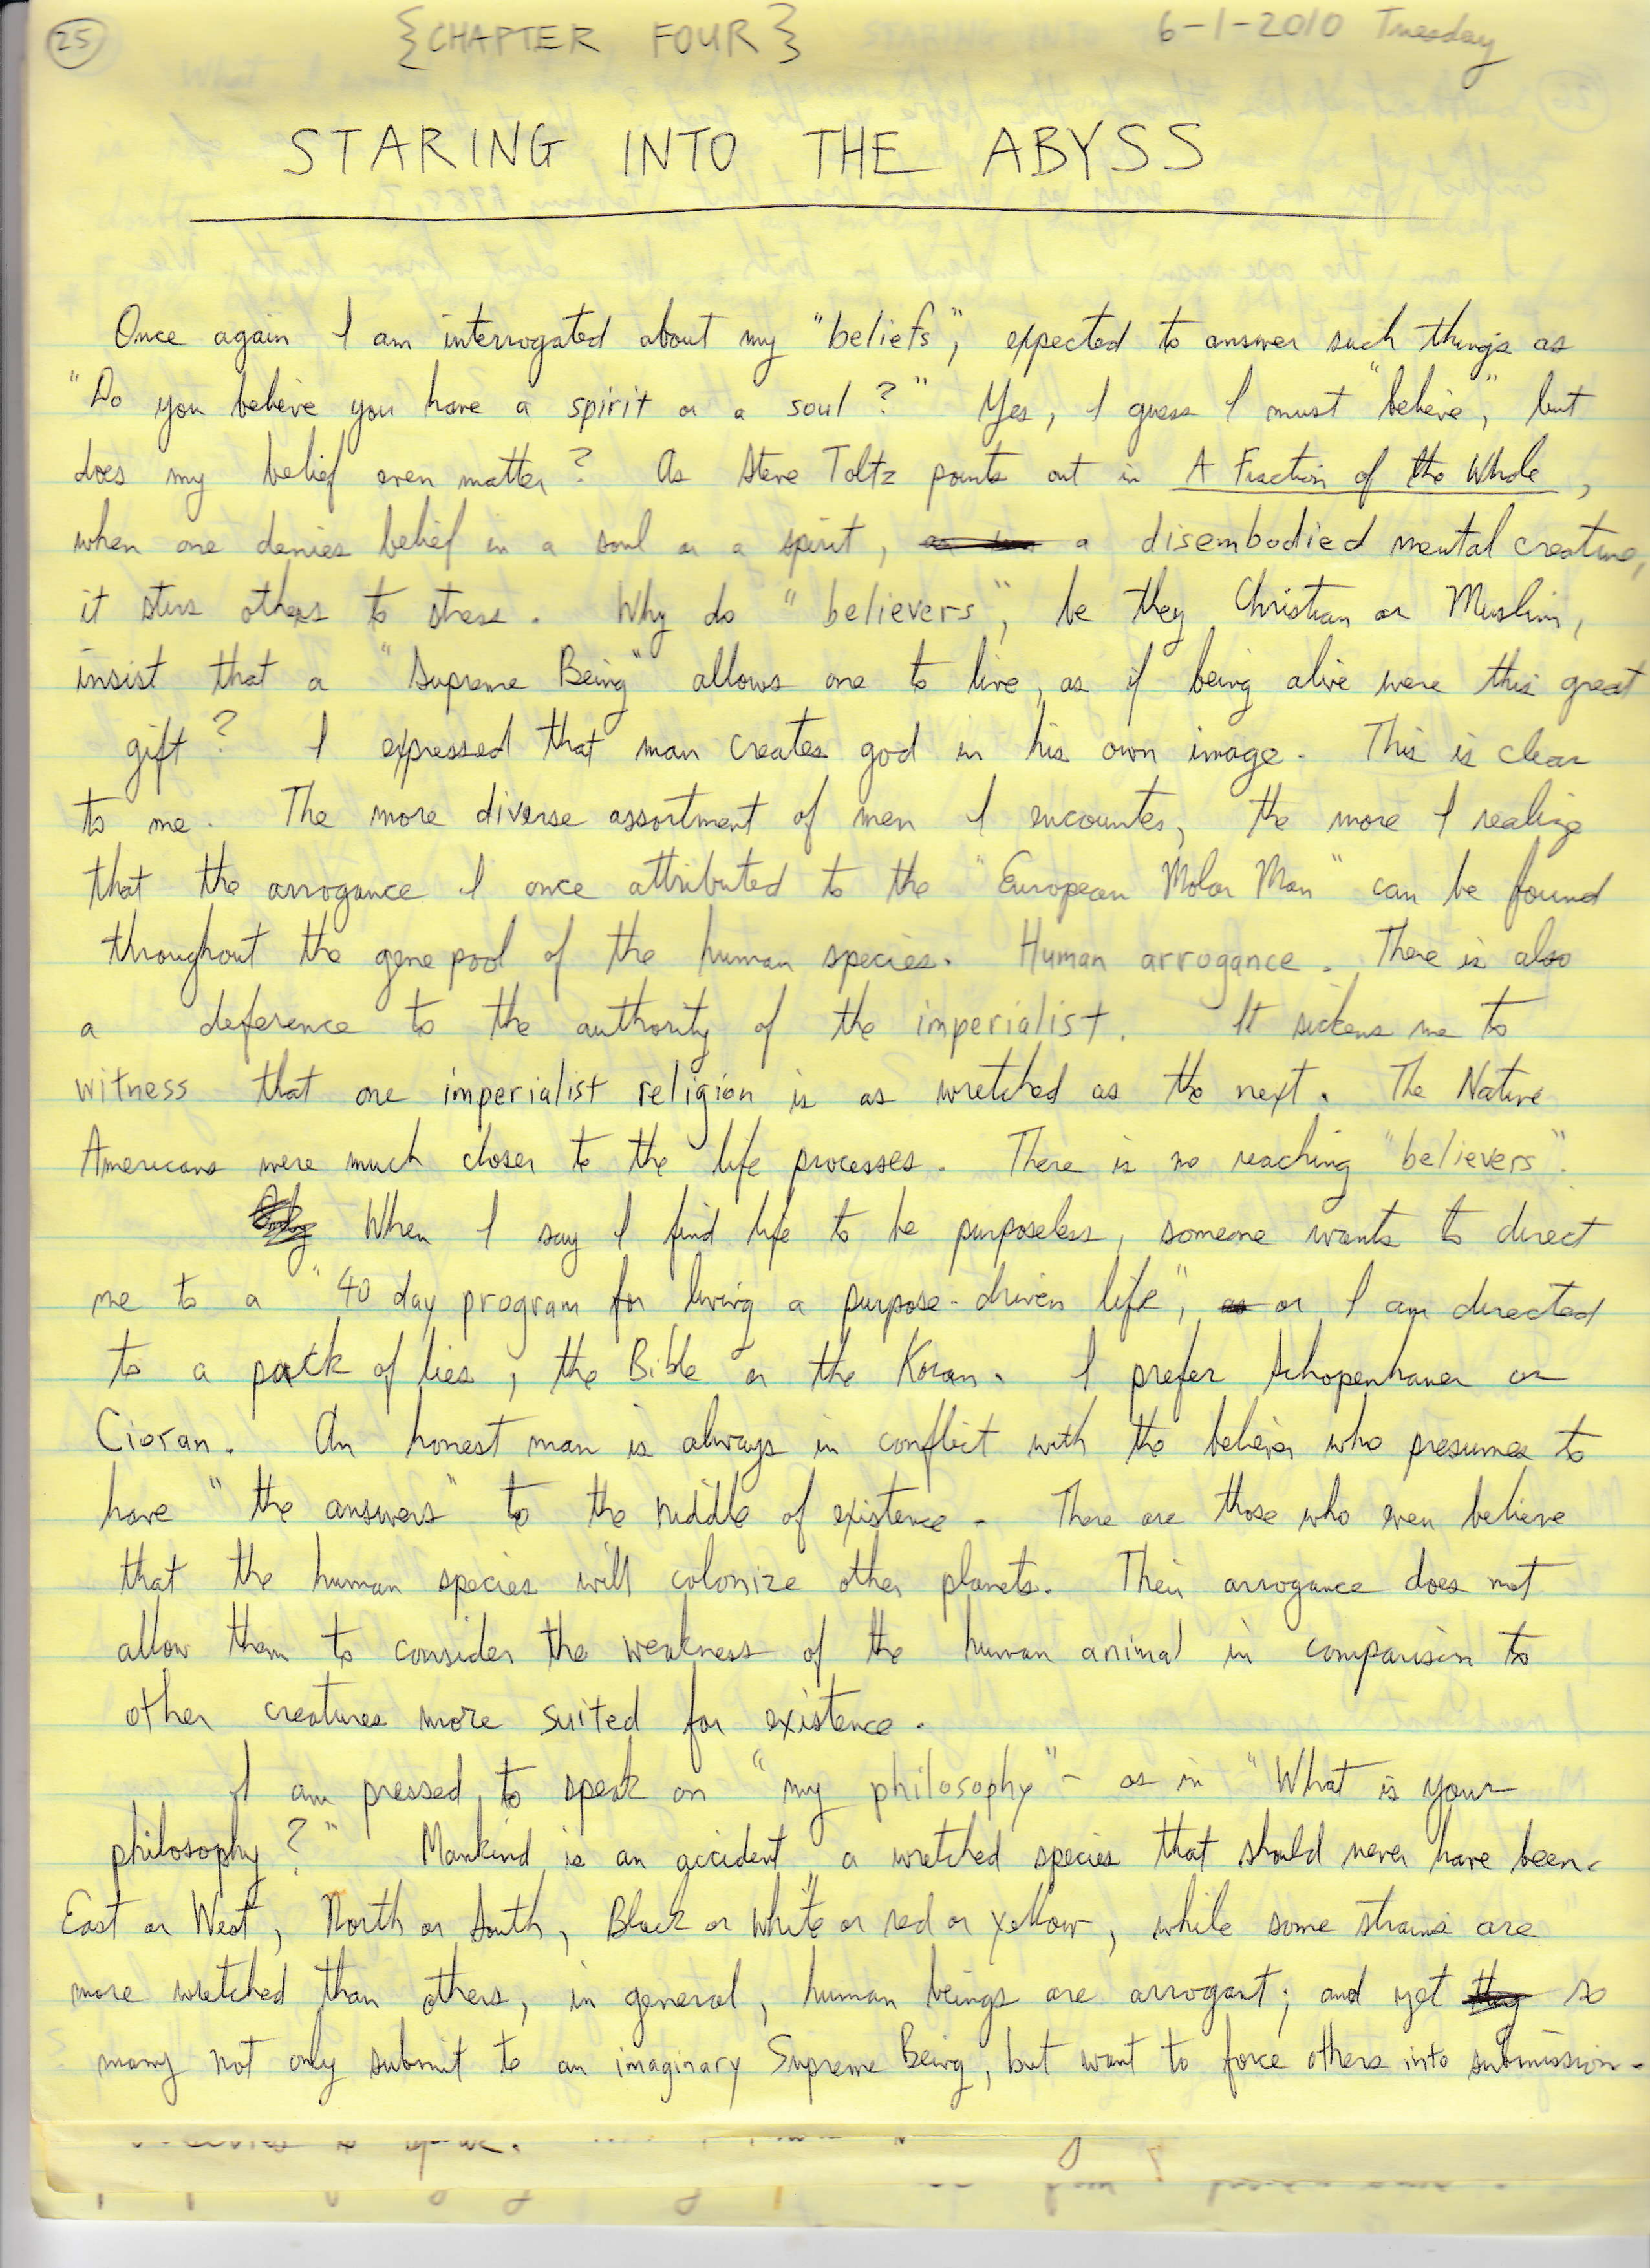 25 {CHAPTER FOUR} 6-1-2010 Tuesday
STARING INTO THE ABYSS
Once again I am interrogated about my "beliefs", expected to answer such things as
"Do you believe you have a spirit or a soul?" Yes, I guess I must "believe", but
does my belief even matter? As Steve Toltz points out in A Fraction of the Whole,
when one denies belief in a soul or a spirit, a disembodied mental creature,
it stirs others to stress. Why do "believers", be they Christian or Muslim,
insist that a "Supreme Being" allows one to live, as if being alive were this great
gift? I expressed that man creates god in his own image. This is clear
to me. The more diverse assortment of men I encounter, the more I realize
that the arrogance I once attributed to the "European Molar Man" can be found
throughout the gene pool of the human species. Human arrogance. There is also
a deference to the authority of the imperialist. It sickens me to
witness that one imperialist religion is as wretched as the next. The Native
Americans were much closer to the life processes. There is no reaching "believers".
When I say I find life to be purposeless, someone wants to direct
me to a "40 day program for living a purpose-driven life", or I am directed
to a pack of lies, the Bible or the Koran. I prefer Schopenhauer or
Cioran. An honest man is always in conflict with the believer who presumes to
have "the answers" to the riddle of existence. There are those who even believe
that the human species will colonize other planets. Their arrogance does not
allow them to consider the weakness of the human animal in comparison to
other creatures more suited for existence.
I am pressed to speak on "my philosophy" - as in "What is your
philosophy?" Mankind is an accident, a wretched species that should never have been.
East or West, North or South, Black or white or red or yellow, while some strains are
more wretched than others, in general, human beings are arrogant; and yet so
many not only submit to an imaginary Supreme Being, but want to force others into submission.